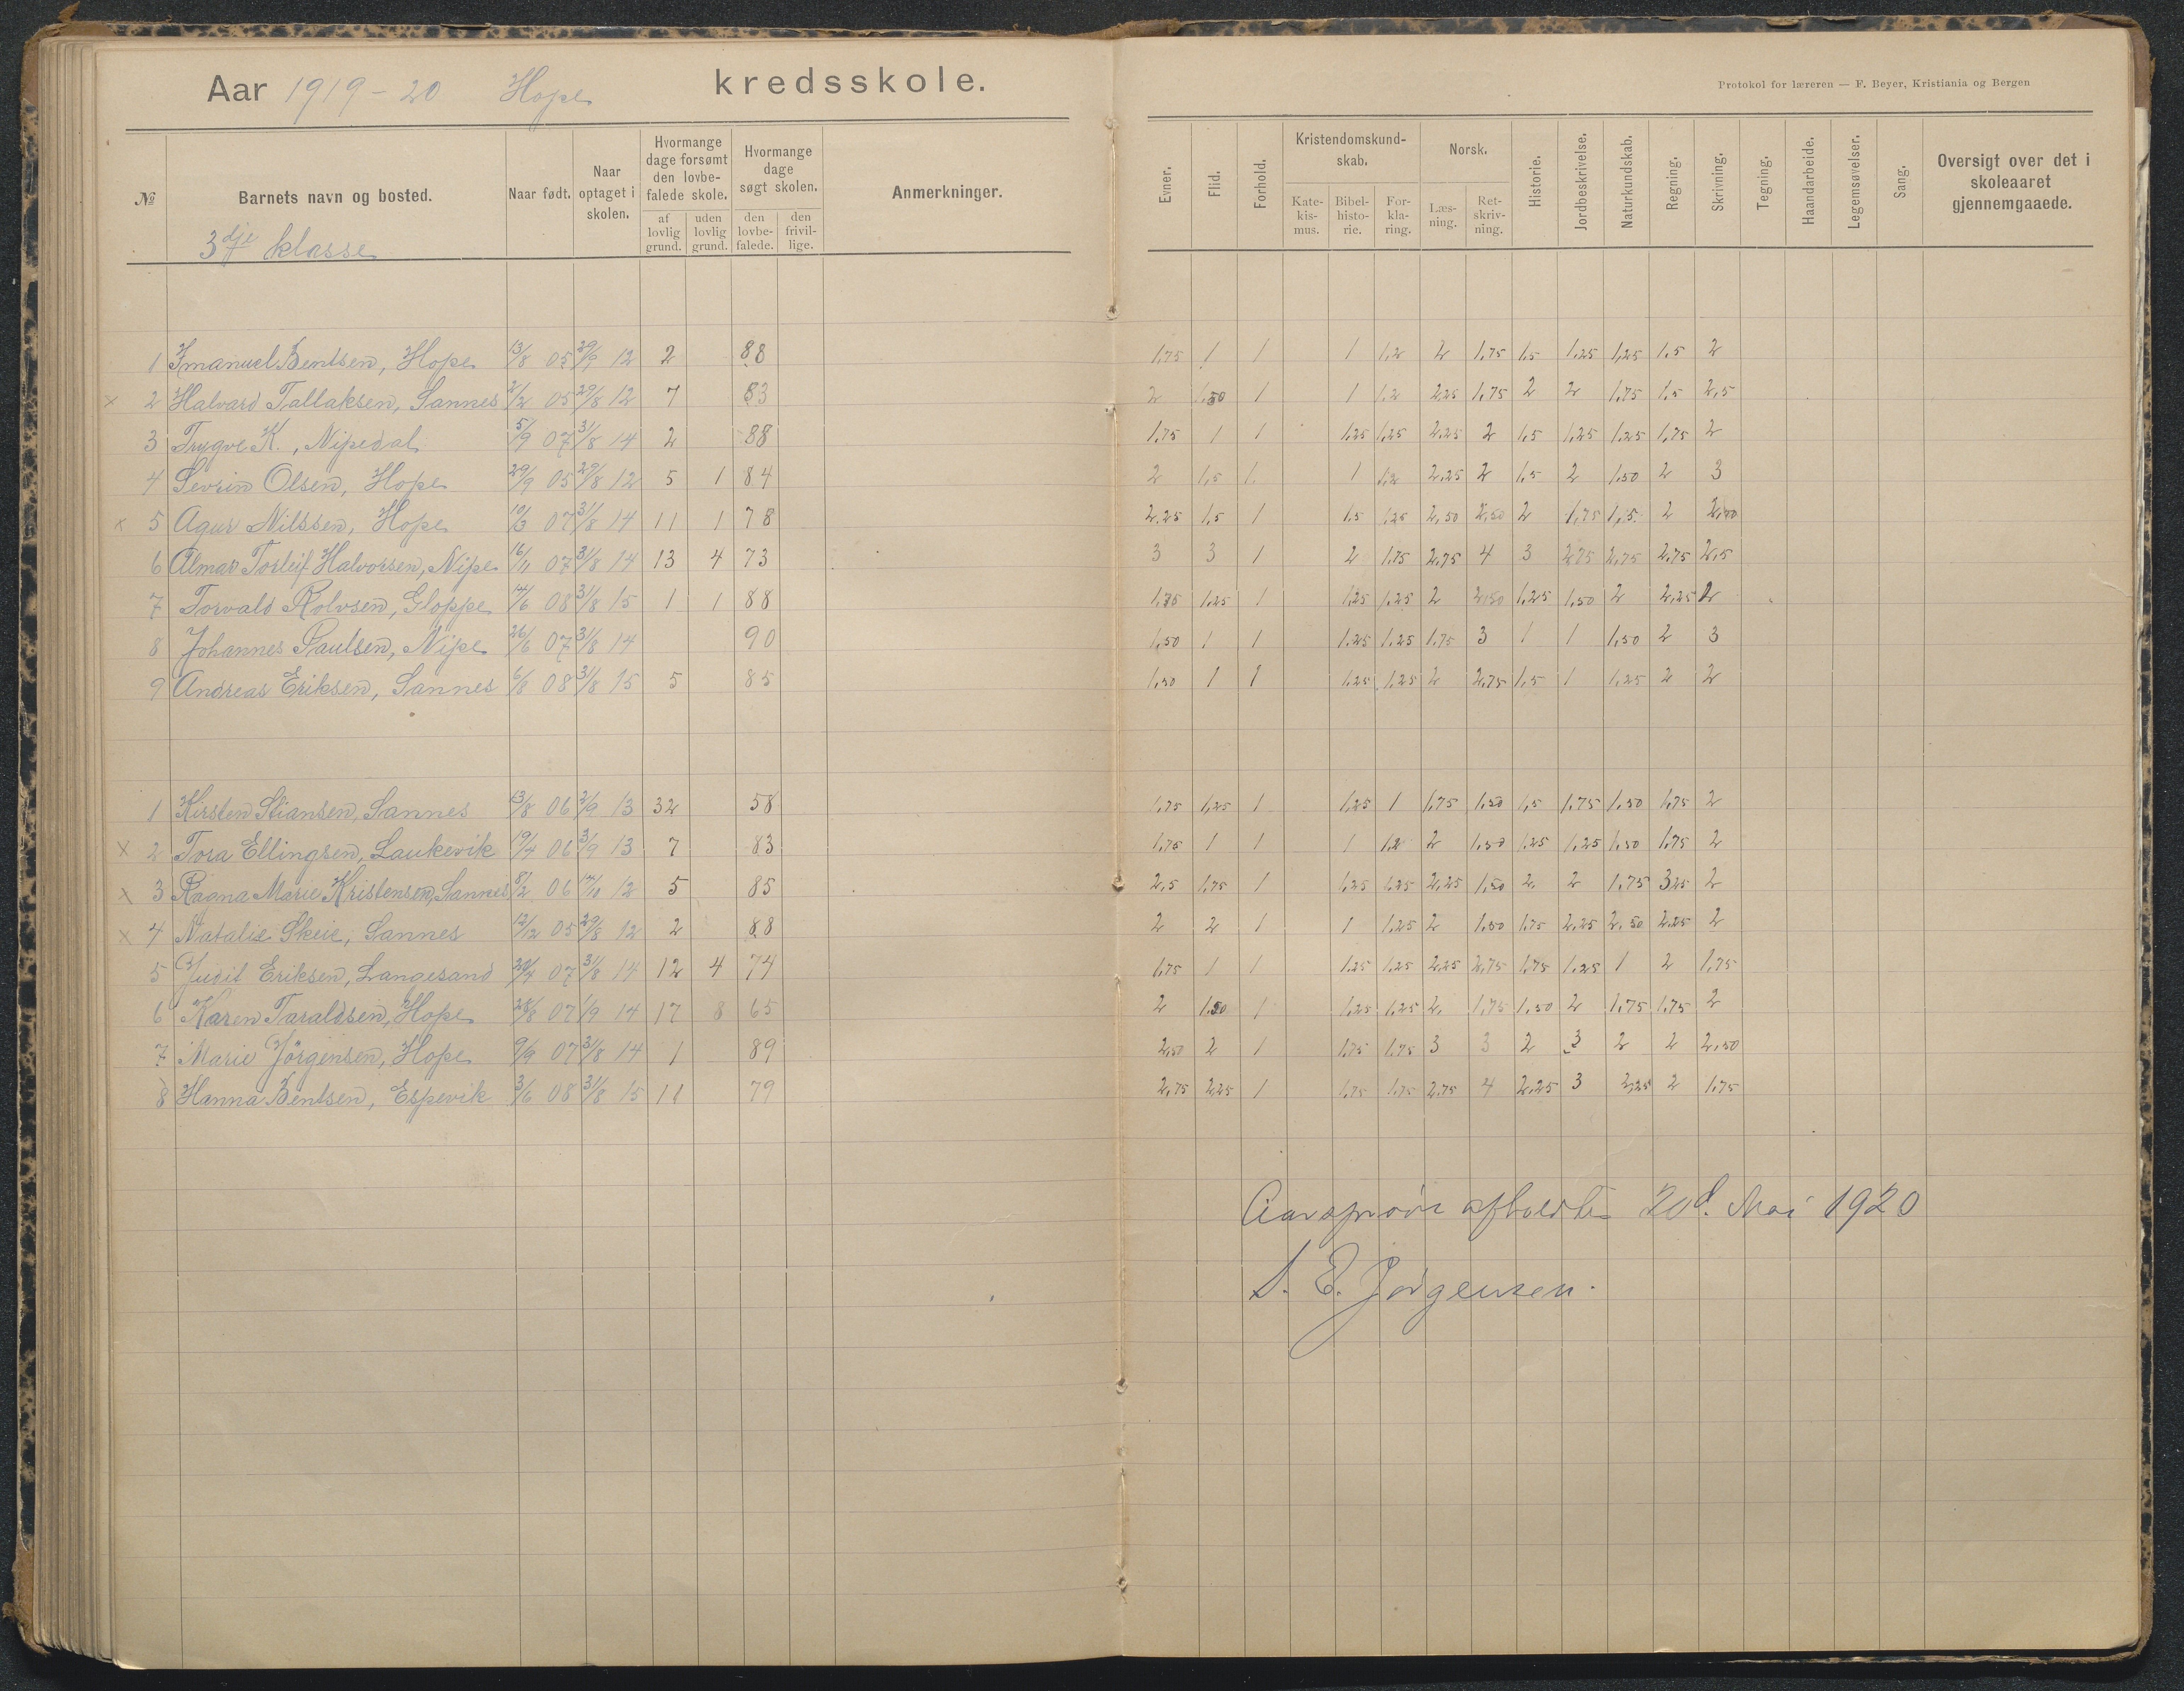 Aar 1919-20 Hope kredsskole.
Protokol for læreren — F. Beyer, Kristiania og Bergen
№ Barnets navn og bosted. Naar født. Naar optaget i skolen. Hvormange dage forsømt den lovbefalede skole. af lovlig grund. uden lovlig grund. Hvormange dage søgt skolen. den lovbefalede. den frivillige. Anmerkninger. Evner. Flid. Forhold. Kristendomskundskab. Katekismus. Bibelhistorie. Forklaring. Norsk. Læsning. Retskrivning. Historie. Jordbeskrivelse. Naturkundskab. Regning. Skrivning. Tegning. Haandarbeide. Legemsøvelser. Sang. Oversigt over det i skoleaaret gjennemgaaede.
3dje klasse
1 Imanuel Bentsen, Hope 13/8 05 29/9 12 2 88 1,75 1 1 1 1,2 2 1,75 1,5 1,25 1,25 1,5 2
x 2 Halvard Tallaksen, Sannes 2/2 05 29/8 12 7 83 2 1,50 1 1 1,2 2,25 1,75 2 2 1,75 1,5 2,5
3 Trygve K., Nipedal 5/9 07 31/8 14 2 88 1,75 1 1 1,25 1,25 2,25 2 1,5 1,25 1,25 1,75 2
4 Sevrin Olsen, Hope 29/9 05 29/8 12 5 1 84 2 1,5 1 1 1,2 2,25 2 1,5 2 1,50 2 3
x 5 Agur Nilssen, Hope 10/3 07 31/8 14 11 1 78 2,25 1,5 1 1,5 1,25 2,50 2,50 2 1,75 1,5 2 2,50
6 Almar Torleif Halvorsen, Nipe 16/11 07 31/8 14 13 4 73 3 3 1 2 1,75 2,75 4 3 2,75 2,75 2,75 2,5
7 Torvald Rolvsen, Gloppe 14/6 08 31/8 15 1 1 88 1,75 1,25 1 1,25 1,25 2 2,50 1,25 1,50 2 2,25 2
8 Johannes Paulsen, Nipe 26/6 07 31/8 14 90 1,50 1 1 1,25 1,25 1,75 3 1 1 1,50 2 3
9 Andreas Eriksen, Sannes 6/8 08 31/8 15 5 85 1,50 1 1 1,25 1,25 2 2,75 1,5 1 1,25 2 2
1 Kirsten Stiansen, Sannes 13/8 06 3/9 13 32 58 1,75 1,25 1 1,25 1 1,75 1,50 1,5 1,75 1,50 1,75 2
x 2 Tora Ellingsen, Laukevik 19/4 06 3/9 13 7 83 1,75 1 1 1 1,2 2 1,50 1,25 1,25 1,50 1,75 2
x 3 Ragna Marie Kristensen, Sannes 8/2 06 14/10 12 5 85 2,5 1,75 1 1,25 1,25 2,25 1,50 2 2 1,75 3,25 2
x 4 Natalie Skeie, Sannes 12/12 05 29/8 12 2 88 2 2 1 1 1,25 2 1,50 1,75 2,25 2,50 2,25 2
5 Judit Eriksen, Langesand 20/4 07 31/8 14 12 4 74 1,75 1 1 1,25 1,25 2,25 2,75 1,75 1,25 1 2 1,75
6 Karen Taraldsen, Hope 28/8 07 1/9 14 17 8 65 2 1,50 1 1,25 1,25 2 1,75 1,50 2 1,75 1,75 2
7 Marie Jörgensen, Hope 9/9 07 31/8 14 1 89 2,50 2 1 1,75 1,75 3 3 2 3 2 2 2,50
8 Hanna Bentsen, Espevik 3/6 08 31/8 15 11 79 2,75 2,25 1 1,75 1,75 2,75 4 2,25 3 2,25 2 1,75
Aarsprøve afholdt 20d. Mai 1920
S. E. Jørgensen.